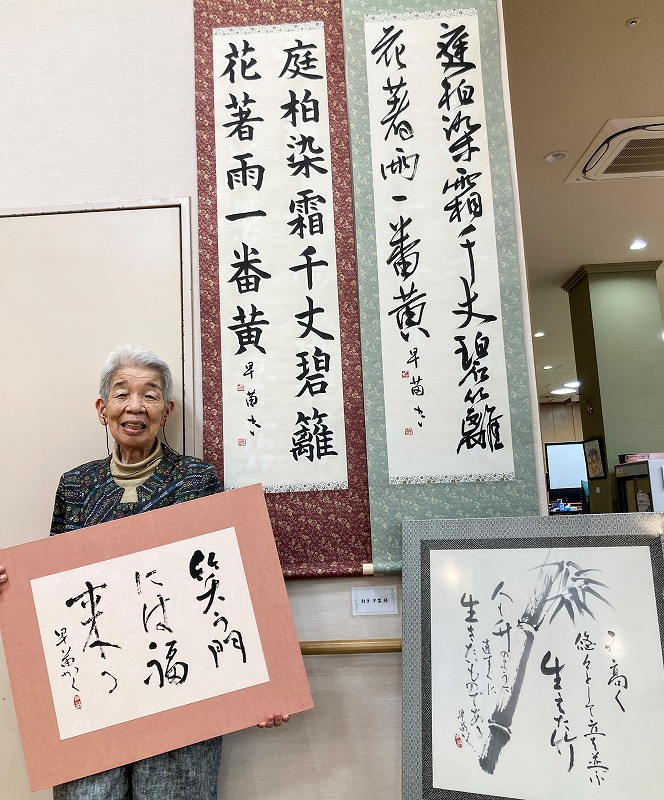 庭柏染霜千丈碧籬
花著雨一番黄
早苗
庭柏染霜千丈碧籬
花著雨一番黄
早苗
笑う門
には福
来る
早苗かく
天高く
悠々として立ち並ぶ
生きた竹
人も竹のように
すぐに
生きたいものである
早苗かく